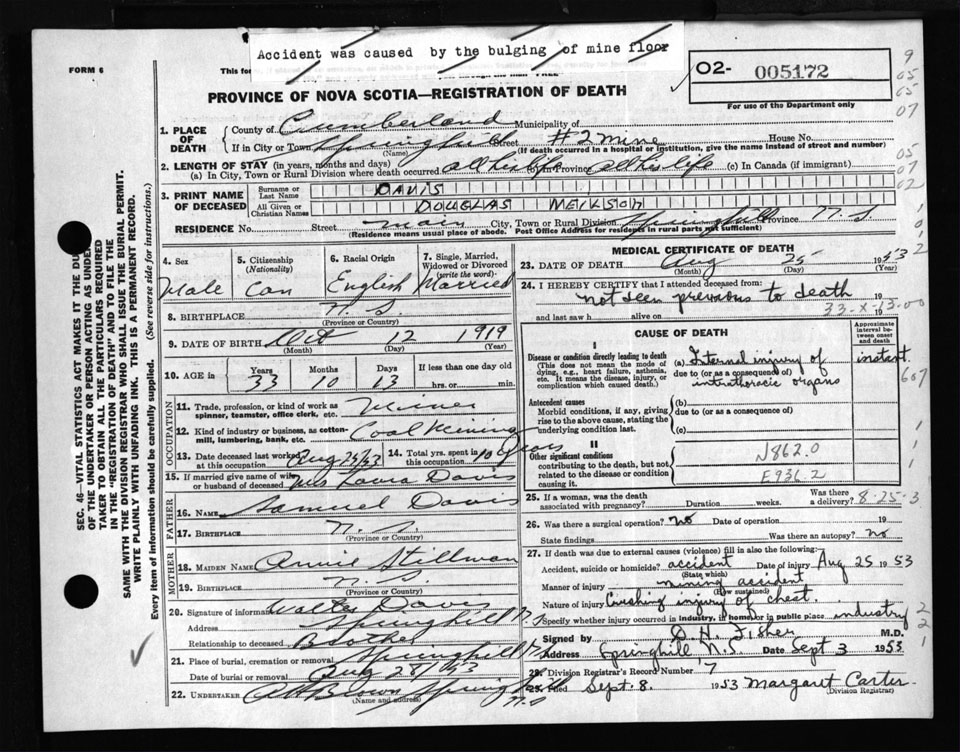 Accident was caused by the bulging of mine floor
FORM 6
This for
02- 005172
For use of the Department only
PROVINCE OF NOVA SCOTIA—REGISTRATION OF DEATH
1. PLACE OF DEATH
County of Cumberland Municipality of
If in City or Town Springhill Street #2 mine House No.
(Name) (If death occurred in a hospital or institution, give the name instead of street and number)
2. LENGTH OF STAY (in years, months and days)
(a) In City, Town or Rural Division where death occurred all his life (b) in Province all his life (c) In Canada (if immigrant)
3. PRINT NAME OF DECEASED
Surname or Last Name DAVIS
All Given or Christian Names DOUGLAS NEILSON
RESIDENCE No. Street main City, Town or Rural Division Springhill Province N.S.
(Residence means usual place of abode. Post Office Address for residents in rural parts not sufficient)
4. Sex
Male
5. Citizenship (Nationality)
Can
6. Racial Origin
English
7. Single, Married, Widowed or Divorced (write the word)
Married
8. BIRTHPLACE N.S.
(Province or Country)
9. DATE OF BIRTH Oct 12 1919
(Month) (Day) (Year)
10. AGE in
Years Months Days If less than one day old
33 10 13 hrs. or min.
OCCUPATION
11. Trade, profession, or kind of work as spinner, teamster, office clerk, etc. Miner
12. Kind of industry or business, as cotten-mill, lumbering, bank, etc. Coal Mining
13. Date deceased last worked at this occupation Aug 25/53
14. Total yrs. spent in this occupation 10 years
15. If married give name of wife or husband of deceased Mrs Davis
FATHER
16. NAME Samuel Davis
17. BIRTHPLACE N.S.
(Province or Country)
MOTHER
18. MAIDEN NAME Annie Stillman
19. BIRTHPLACE N.S.
(Province or Country)
20. Signature of informant Walter Davis
Address Springhill N.S.
Relationship to deceased Brother
21. Place of burial, cremation or removal Springhill N.S.
Date of burial or removal Aug 28/53
22. UNDERTAKER Brown Springhill
(Name and address) N.S
MEDICAL CERTIFICATE OF DEATH
23. DATE OF DEATH Aug 25 1953
(Month) (Day) (Year)
24. I HEREBY CERTIFY that I attended deceased from:
not seen previous to death 19
and last saw h alive on 19
33-X-13.00
CAUSE OF DEATH
Approximate interval between onset and death
I
Disease or condition directly leading to death
(This does not mean the mode of dying, e.g., heart failure, asthenia, etc. It means the disease, injury, or complication which caused death.)
(a) Internal injury of
due to (or as a consequence of)
intrathoracic organs
instant
607
Antecedent causes
Morbid conditions, if any, giving rise to the above cause, stating the underlying condition last.
(b)
due to (or as a consequence of)
(c)
II
Other significant conditions
contributing to the death, but not related to the disease or condition causing it.
N862.0
E936.2
25. If a woman, was the death associated with pregnancy? Duration weeks. Was there a delivery? 8-25-3
26. Was there a surgical operation? no Date of operation 19
State findings Was there an autopsy? no
27. If death was due to external causes (violence) fill in also the following:
Accident, suicide or homicide? accident Date of injury Aug 25 1953
(State which)
Manner of injury mining accident
(How sustained)
Nature of injury Crushing injury of chest.
Specify whether injury occurred in industry, in home, or in public place industry
Signed by D. H. Fisher M.D.
Address Springhill N.S. Date Sept 3 1953
28. Division Registrar's Record Number 7
29. Filed Sept. 8. 1953 Margaret Carter
(Division Registrar)
SEC. 46—VITAL STATISTICS ACT MAKES IT THE DU
OF THE UNDERTAKER OR PERSON ACTING AS UNDER
TAKER TO OBTAIN ALL THE PARTICULARS REQUIRED
IN THE "REGISTRATION OF DEATH" AND TO FILE THE
SAME WITH THE DIVISION REGISTRAR WHO SHALL ISSUE THE BURIAL PERMIT.
WRITE PLAINLY WITH UNFADING INK. THIS IS A PERMANENT RECORD.
Every item of information should be carefully supplied. (See reverse side for instructions.)
9
05
65
07
05
07
02